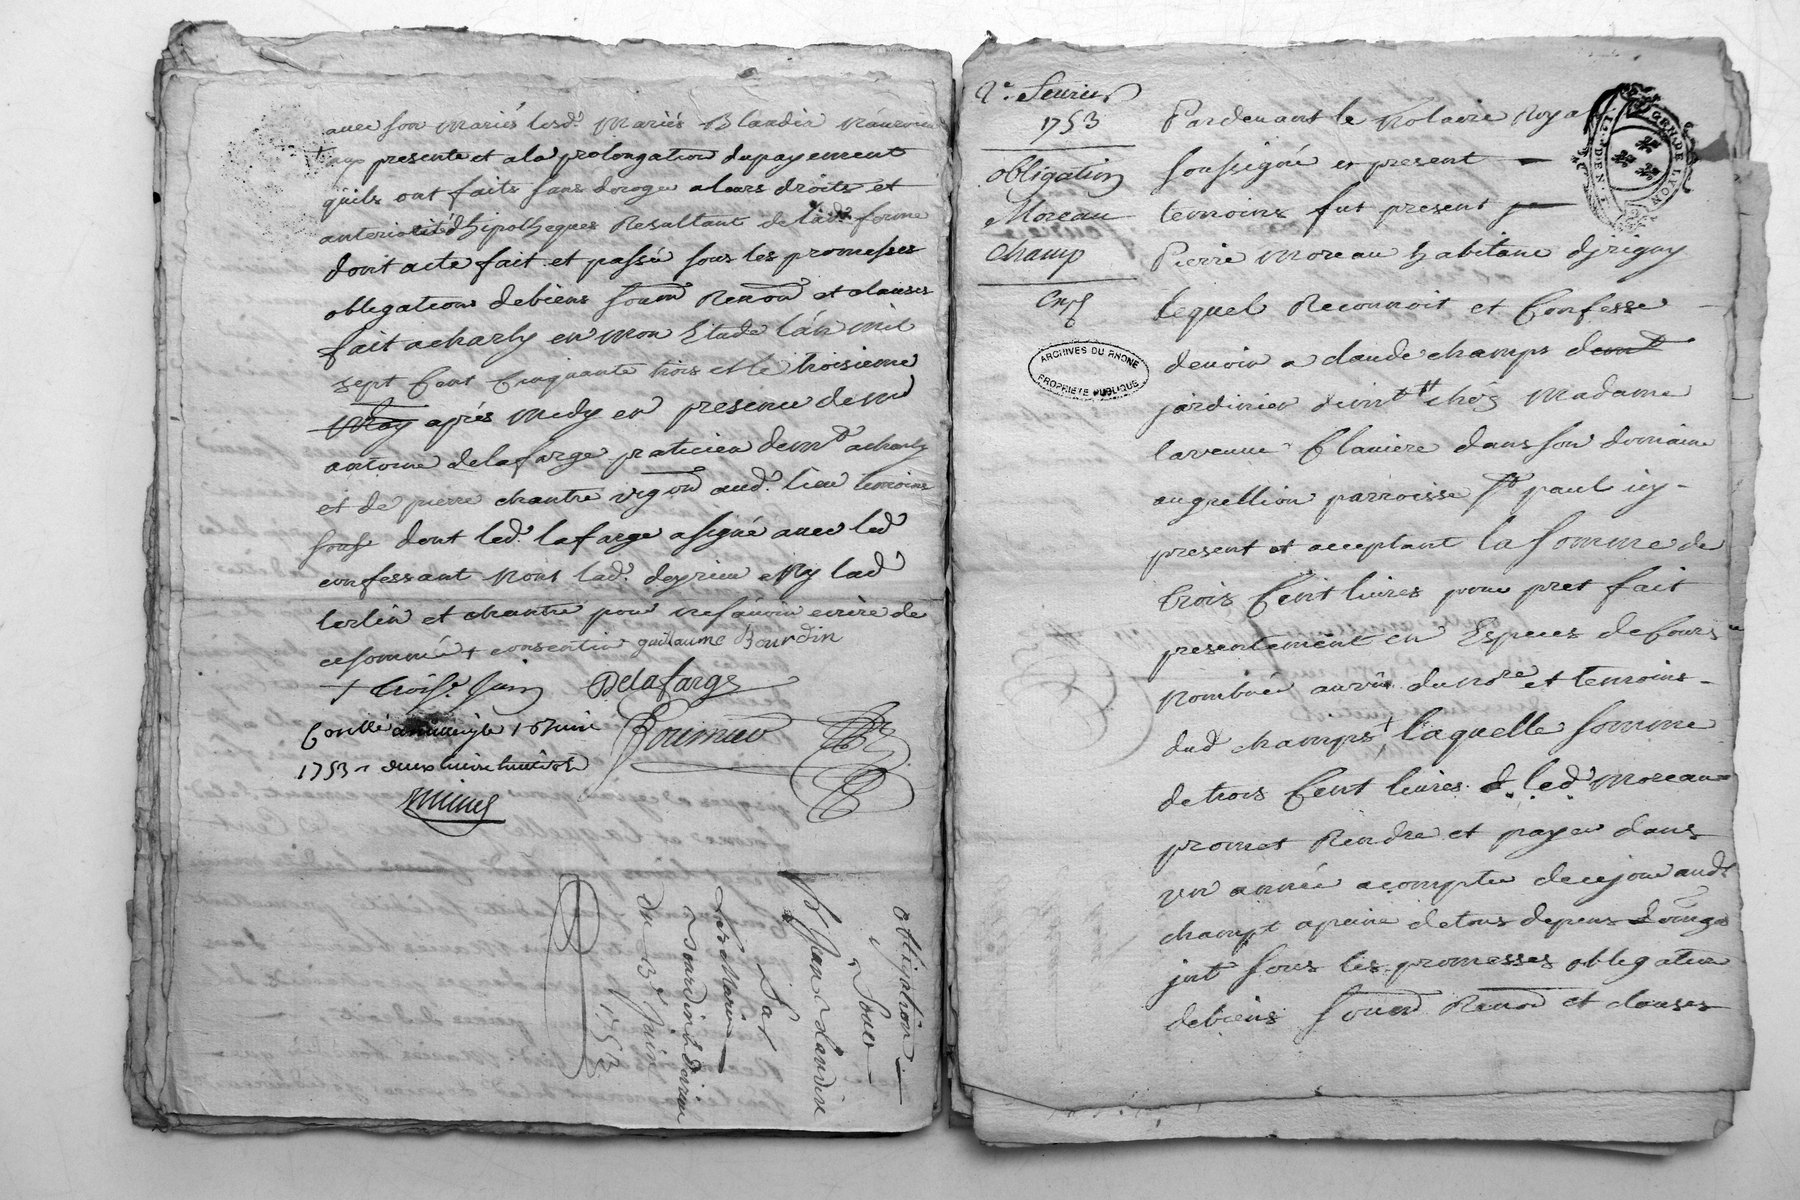 avec son mariés lesd. mariés Blandin
presente et a la prolongation du payement
quils ont faits sans deroger a leurs droits et
anteriorité dhipotheques Resultant de lad. somme
dont acte fait et passé sous les promesses
obligations de biens soum Renon et clauses
fait a charly en mon Etude lan mil
sept Cent Cinquante trois et le troisieme
May après midy en presence de me
antoine delafarge praticien demt a charly
et de pierre chantre vigon aud. lieu temoins
souss dont led. lafarge a signé avec led
confessant non lad. deyrieu ny lad
et chantre pour ne savoir ecrire de
ce sommé + consentin guillaume Bourdin
+ trois.e Juin Delafarge
Conllé 16 Juin
1753
obligation
pour
Sr Jean Blandin
Sur
les Mariés
Bourdin & Deyrieu
du 3e Juin
1753
2e feurier
1753
obligation
Moreau
champ
Exp
ARCHIVES DU RHONE
PROPRIETE PUBLIQUE
GEN. DE LYON
Pardevant le Notaire Royal
soussigné et present
temoins fut present
Pierre Moreau habitant dirigny
lequel Reconnoit et Confesse
devoir a claude champs demt
jardinier demt chés Madame
la veuve Flaniere dans son domaine
au grellion parroisse St paul icy
present et acceptant la somme de
trois Cent livres pour pret fait
presentement en Especes de Cours
nombrée au vû du nore et temoins
dud champs laquelle somme
de trois Cent livres led Moreau
promet Rendre et payer dans
un année a compter de ce jour aud
champt a peine de tous depens domges
int sous les promesses obligations
de biens soum Renon et clauses